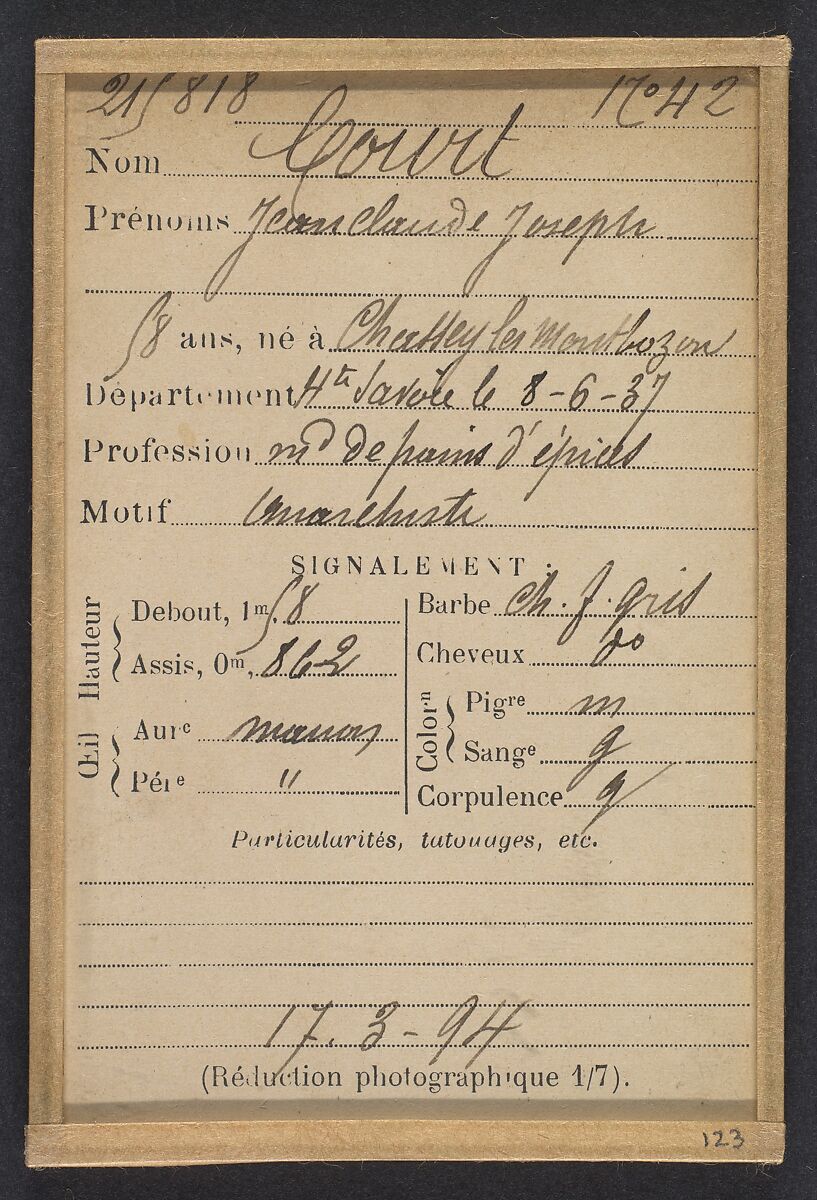 215818 N° 42
Nom Court
Prénoms Jean Claude Joseph
58 ans, né à Chassey les Montbozon
Département Hte Savoie le 8-6-37
Profession md de pains d'épices
Motif Anarchiste
SIGNALEMENT :
Hauteur
Debout, 1m, 58
Assis, 0m, 862
Œil
Aure marron
Pére "
Barbe ch. f. gris
Cheveux do
Colorn
Pigre m
Sange g
Corpulence g
Particularités, tatouages, etc.
17.3-94
(Réduction photographique 1/7).
123